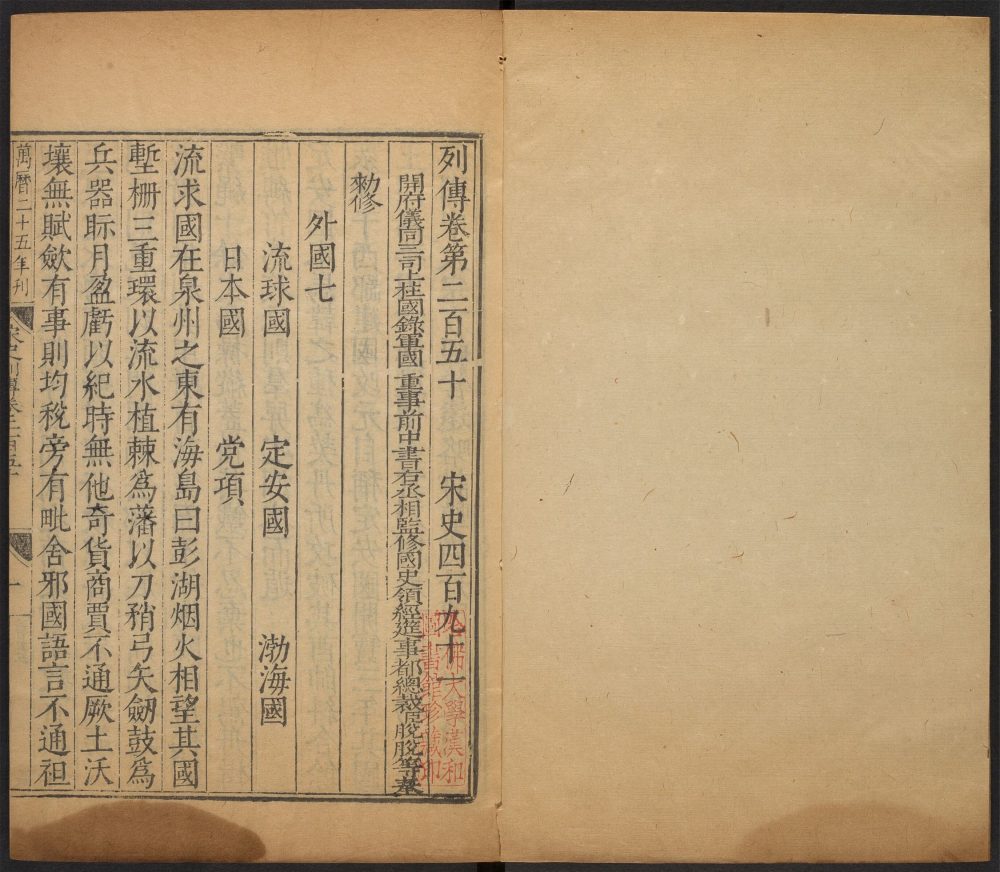 列傳卷第二百五十 宋史四百九十一
開府儀同三司上柱國錄軍國重事前中書右丞相監修國史領經筵事都總裁脫脫等奉
勑修
外國七
流球國 定安國 渤海國
日本國 党項
流求國在泉州之東有海島曰彭湖烟火相望其國
塹柵三重環以流水植棘爲藩以刀矟弓矢劒鼓爲
兵器眎月盈虧以紀時無他奇貨商賈不通厥土沃
壤無賦斂有事則均稅旁有毗舍邪國語言不通袒
萬曆二十五年刊
宋史列傳卷二百五十
一
哈佛大學漢和
圖書館珍藏印